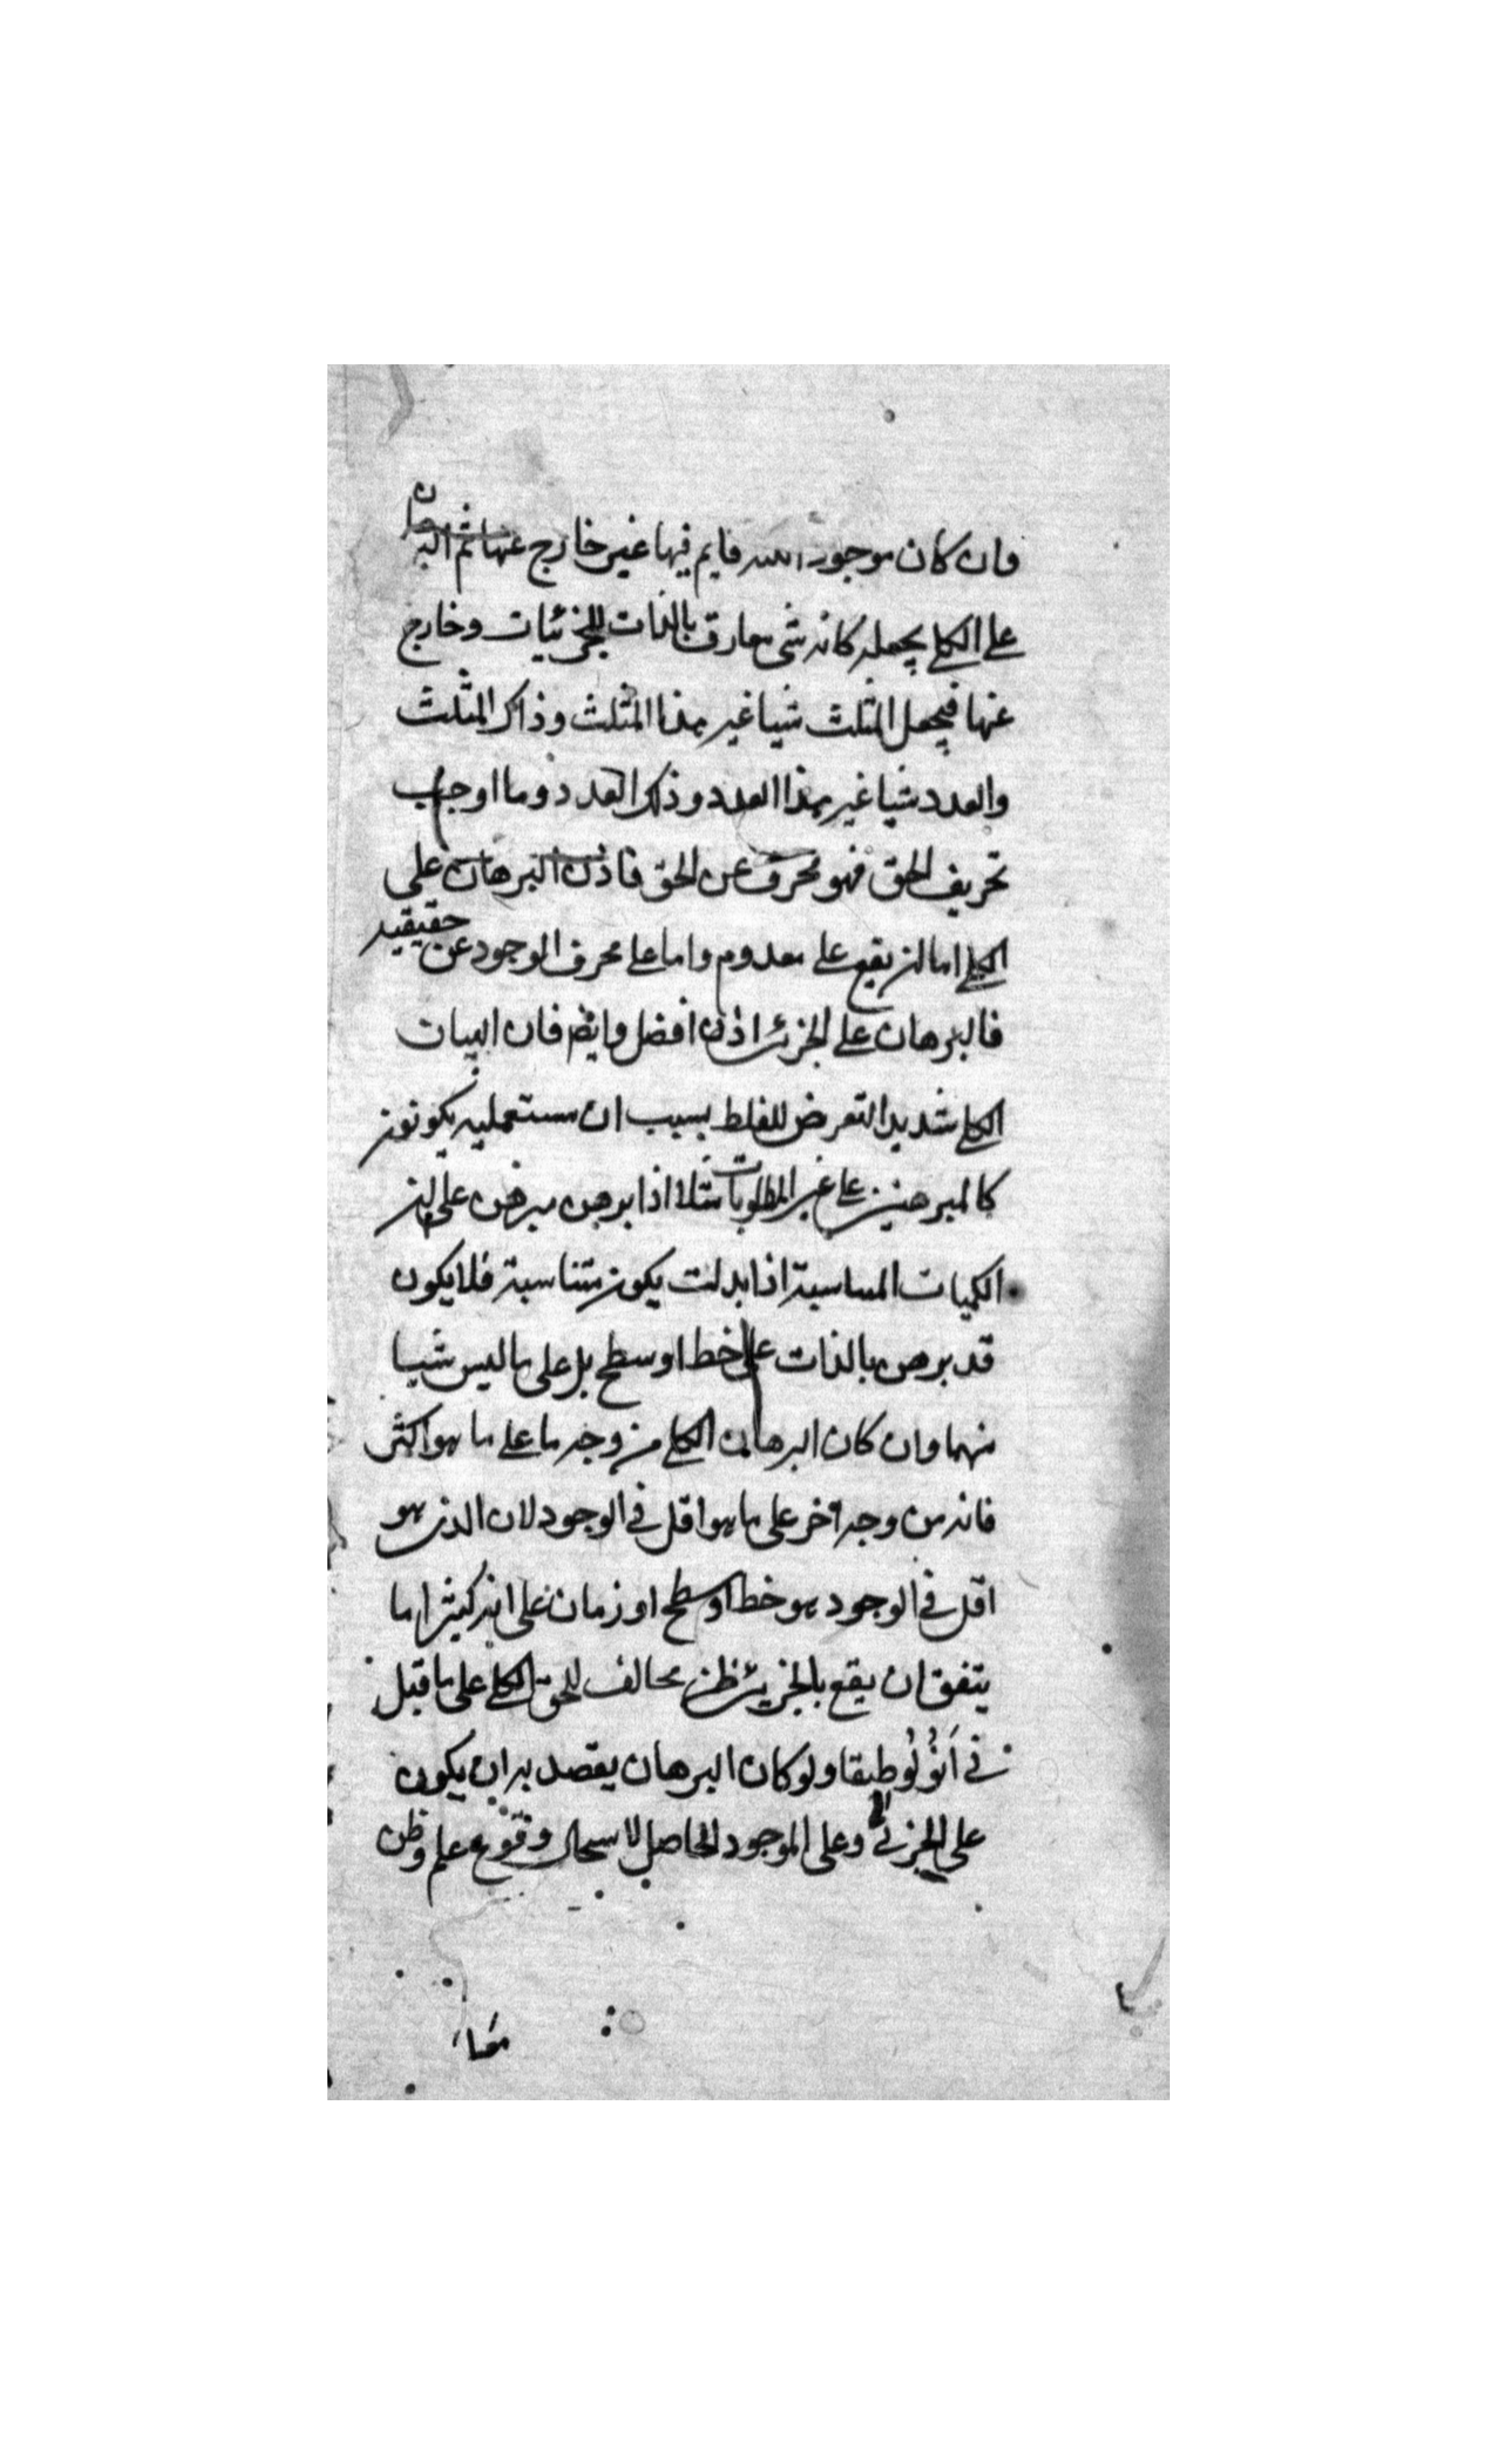 وان كان موجودا فايم فيها غير خارج عنها ثم البرهان
على الكلى يجعله كانه شى مفارق بالذات للجزئيات وخارج
عنها فيجعل المثلث شيا غير هذا المثلث وذاك المثلث
والعدد شيا غير هذا العدد وذلك العدد وما اوجب
تحريف الحق فهو محرف عن الحق فاذن البرهان على
الكلى اما ان يقع على معدوم واما على محرف الوجود عن حقيقيه
فالبرهان على الجزئى اذن افضل وايضم فان البيات
الكلى شديد التعرض للغلط بسبب ان مستعمليه يكونون
كالمبرهنين على غير المطلوبات مثلا اذا برهن مبرهن على ان
الكميات المساسبة اذا بدلت يكون متناسبة فلا يكون
قد برهن بالذات على خط او سطح بل على ما ليس شيا
منهما وان كان البرهان الكلى من وجه ما على ما هو اكثر
فانه من وجه آخر على ما هو اقل فى الوجود لان الذى هو
اقل فى الوجود هو خط او سطح او زمان على انه كثيرا ما
يتفق ان يقع بالجزيئى ظن مخالف للحق الكلى على ما قيل
فى اَنُولُوطيقا ولو كان البرهان يقصد به ان يكون
على الجزئى وعلى الموجود الحاصل لا سحال وقوع علم وظن
معا